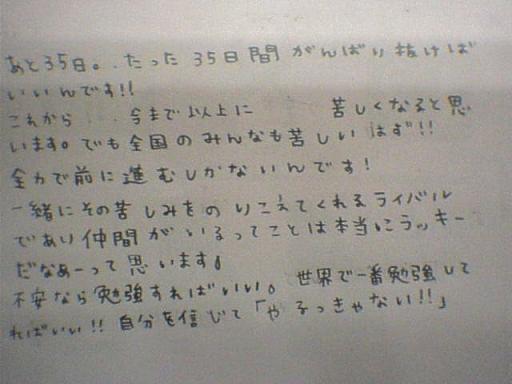 あと35日。たった35日間がんばり抜けば
いいんです!!
これから 今まで以上に 苦しくなると思
います。でも全国のみんなも苦しいはず!!
全力で前に進むしかないんです!
一緒にその苦しみをのりこえてくれるライバル
であり仲間がいるってことは本当にラッキー
だなあーって思います。
不安なら勉強すればいい。世界で一番勉強して
ればいい!!自分を信じて「やるっきゃない!!」